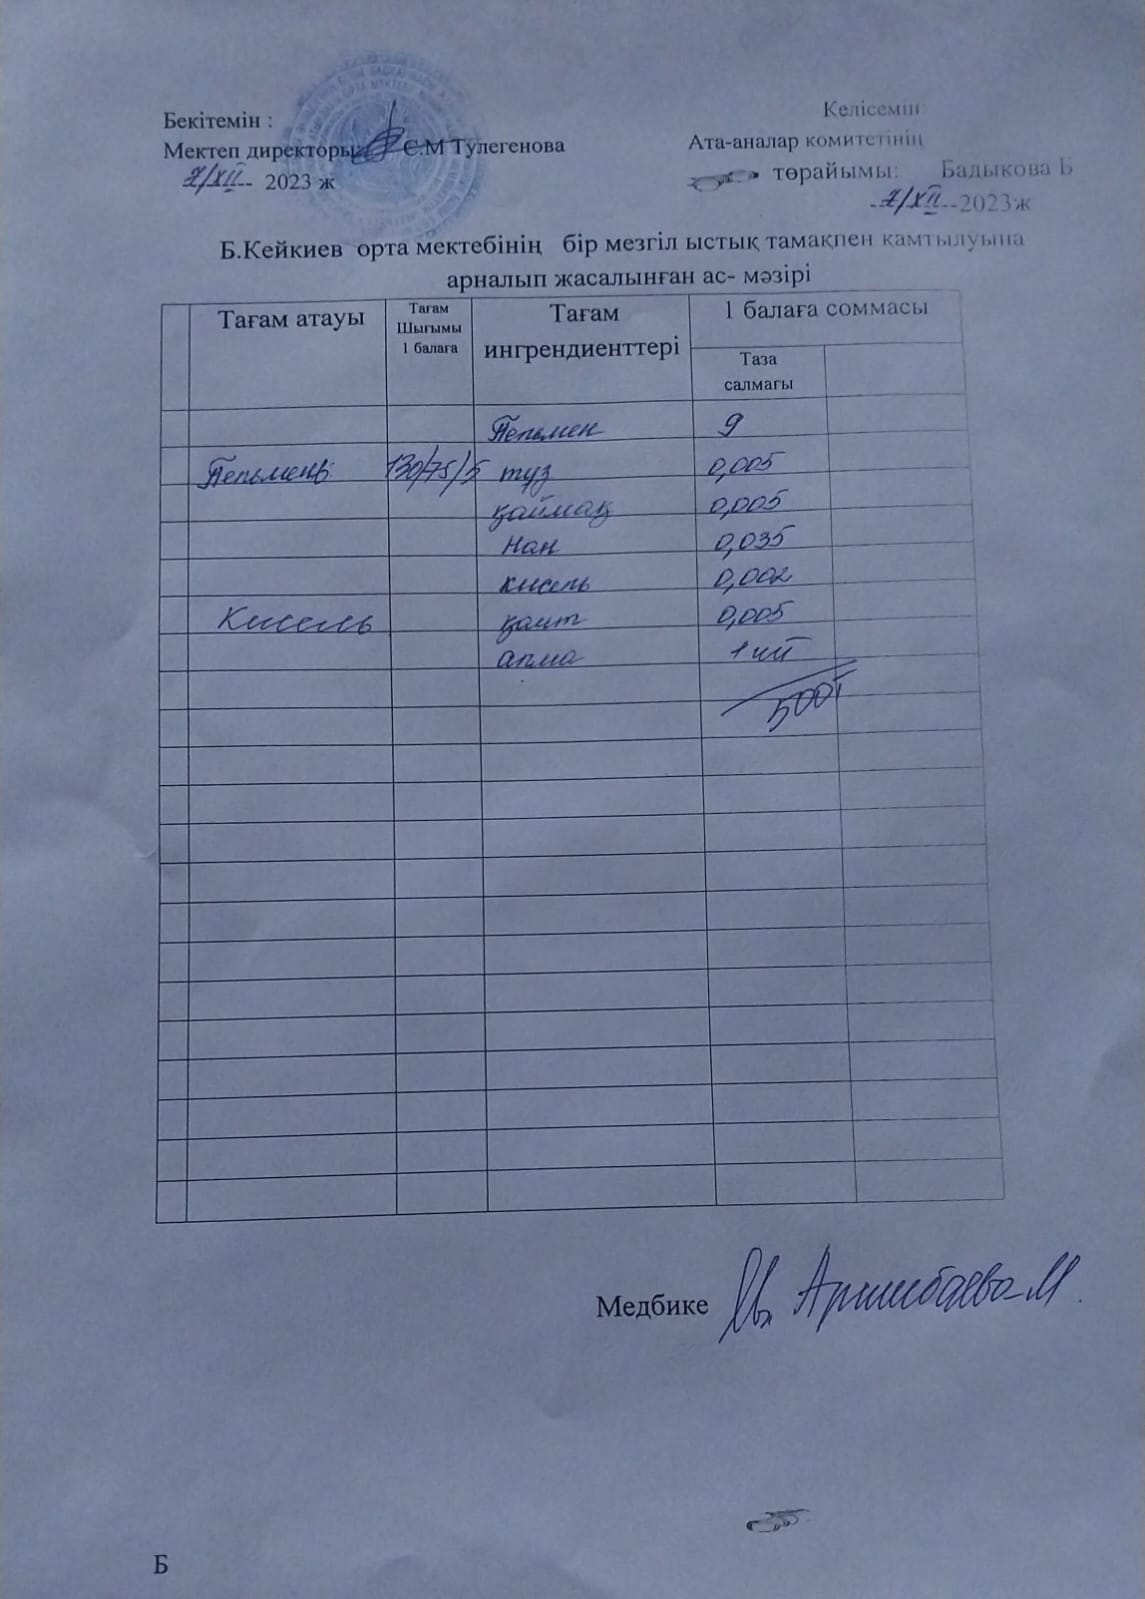 Бекітемін :
Келісемін
Мектеп директоры С.М Тулегенова
Ата-аналар комитетінің
төрайымы: Бадыкова Б
7/XII-- 2023 ж
-7/XII--2023ж
Б.Кейкиев орта мектебінің бір мезгіл ыстық тамақпен қамтылуына
арналып жасалынған ас- мәзірі
Тағам атауы
Тағам
Шығымы
1 балаға
Тағам
ингрендиенттері
1 балаға соммасы
Таза
салмағы
Пельмен 9
Пельмень: 130/75/5 тұз 0,005
қаймақ 0,005
Нан 0,035
кисель 0,002
Кисель қант 0,005
алма 1 шт
500т
Медбике
Б